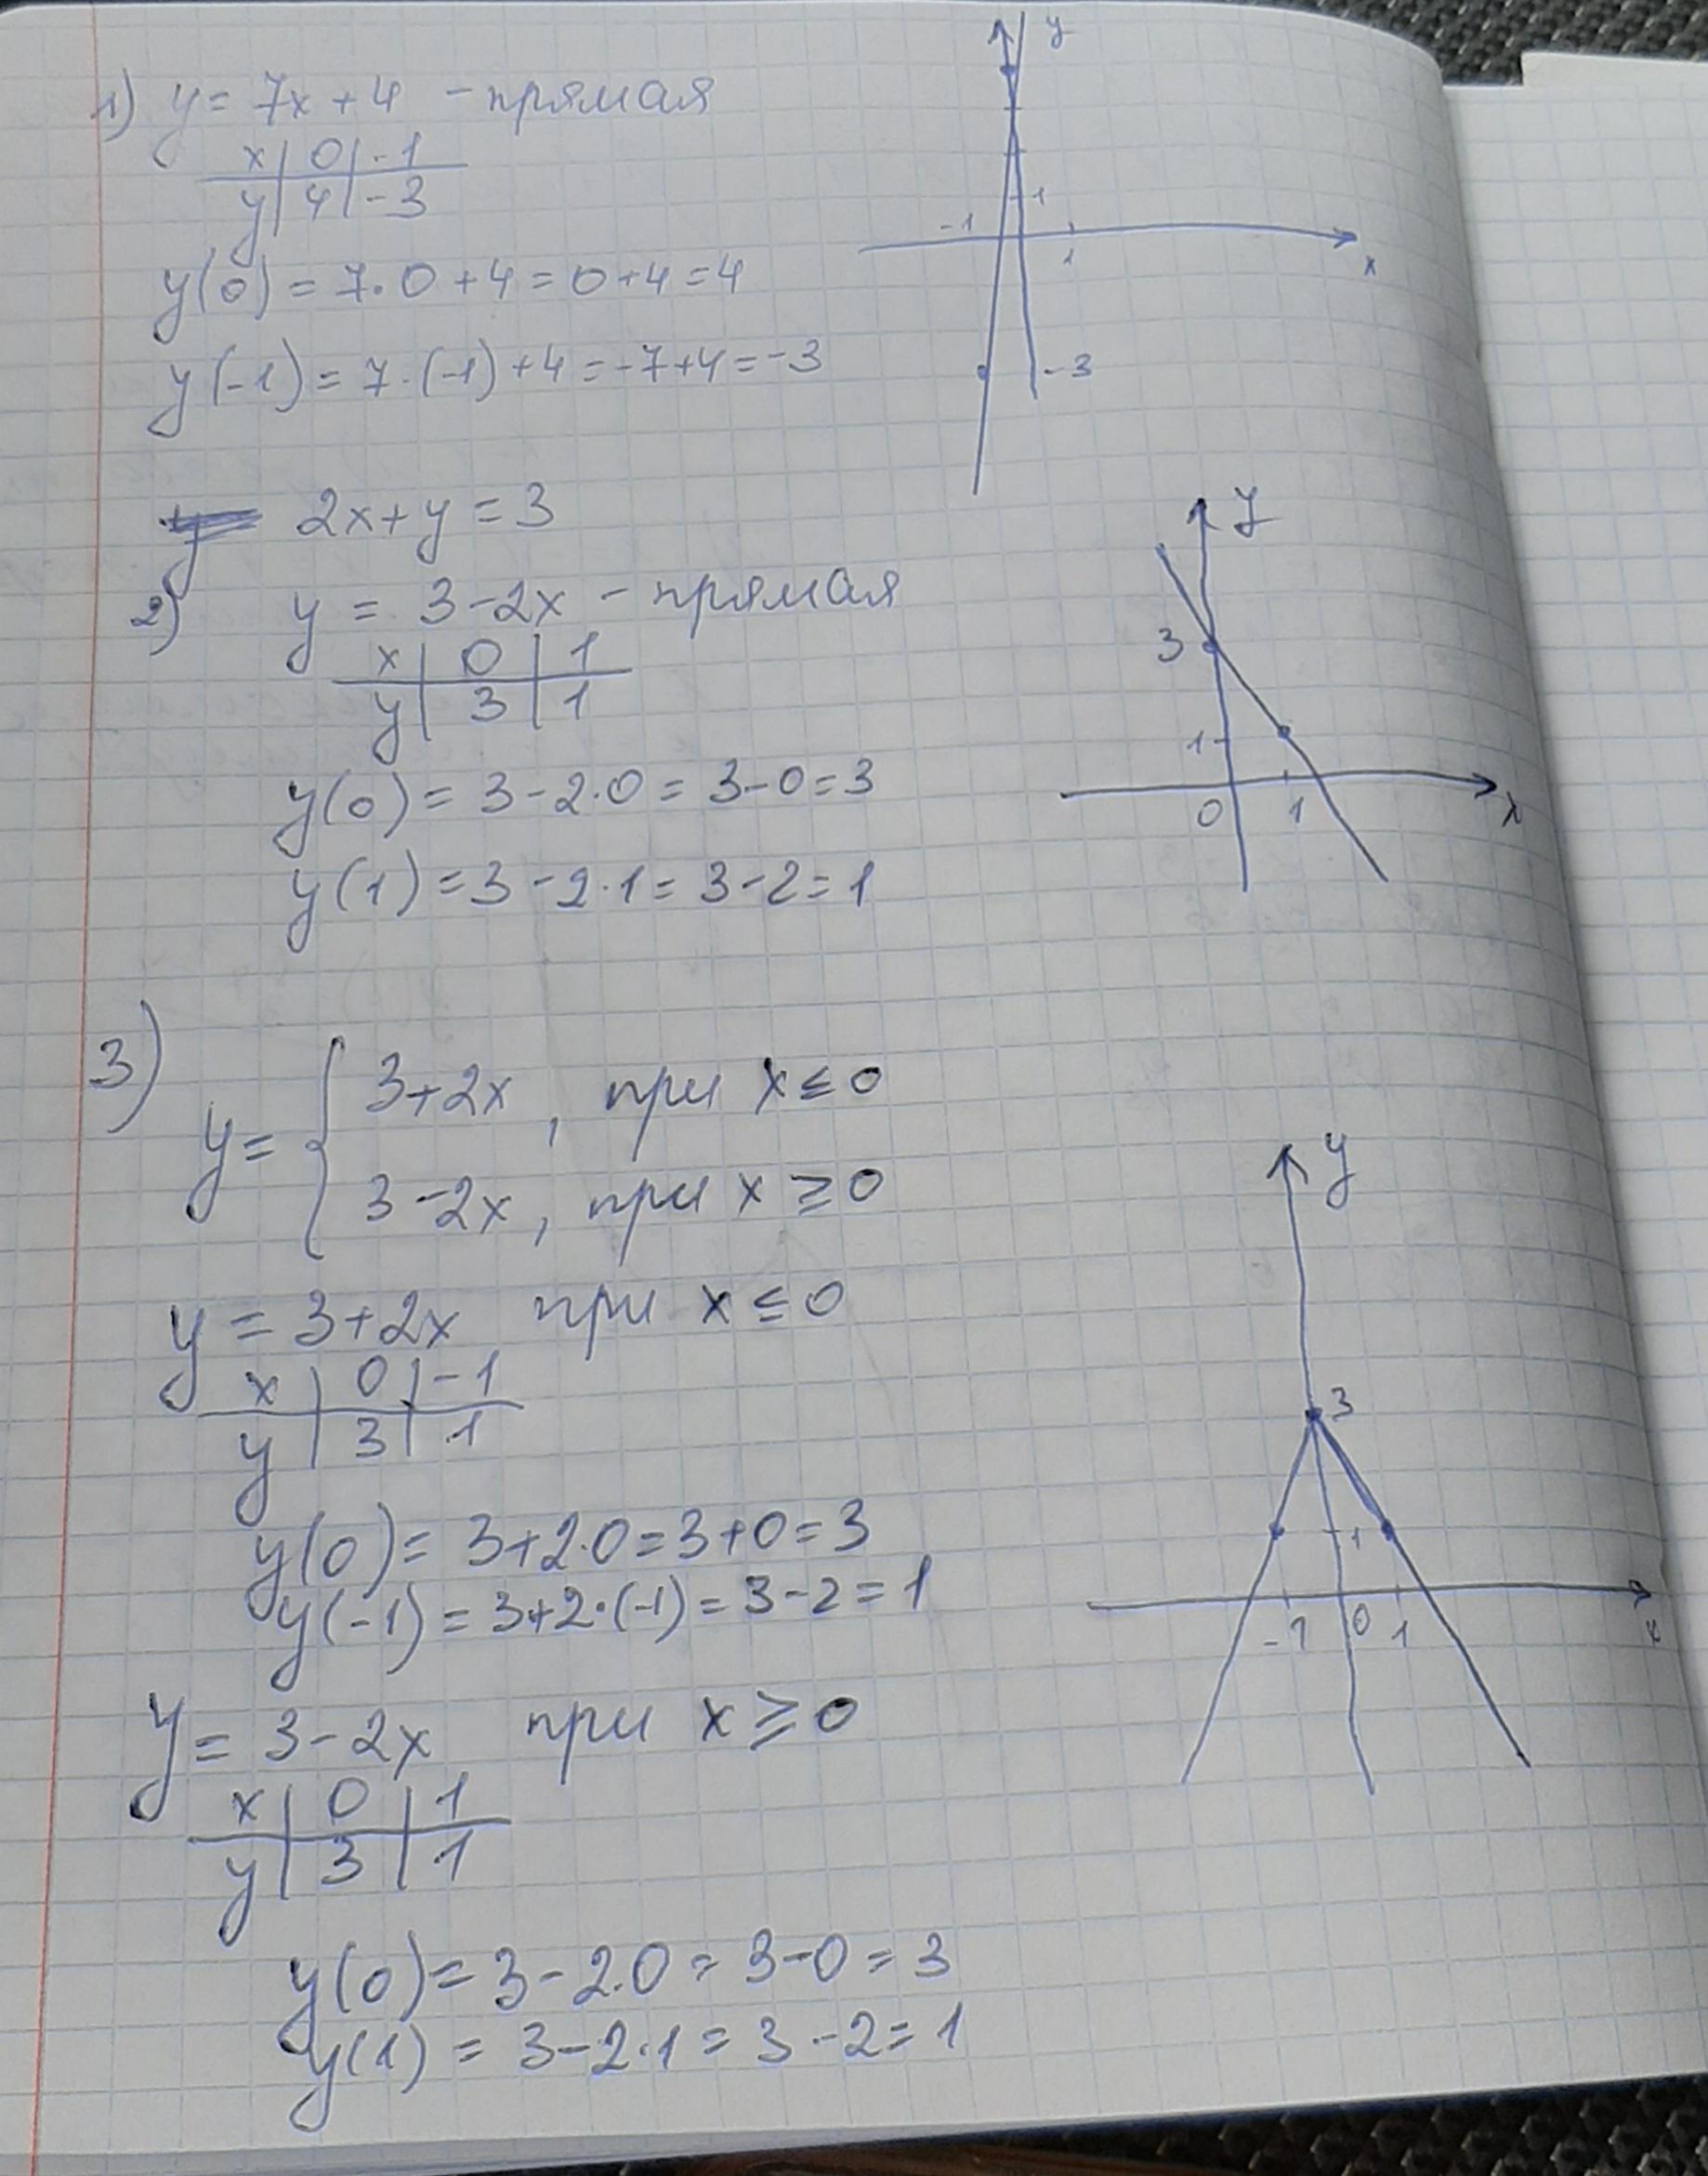 1) y = 7x + 4 - прямая
x | 0 | -1
y | 4 | -3
y(0) = 7·0 + 4 = 0+4 = 4
y(-1) = 7·(-1) + 4 = -7+4 = -3
y
1
-1
1
x
-3
2x + y = 3
2) y = 3 - 2x - прямая
x | 0 | 1
y | 3 | 1
y(0) = 3 - 2·0 = 3 - 0 = 3
y(1) = 3 - 2·1 = 3 - 2 = 1
y
3
1
0 1
x
3)
y = { 3+2x, при x ≤ 0
3-2x, при x ≥ 0
y = 3+2x при x ≤ 0
x | 0 | -1
y | 3 | 1
y(0) = 3+2·0 = 3+0 = 3
y(-1) = 3+2·(-1) = 3-2 = 1
y = 3-2x при x ≥ 0
x | 0 | 1
y | 3 | 1
y(0) = 3-2·0 = 3-0 = 3
y(1) = 3-2·1 = 3-2 = 1
y
3
1
-1 0 1
x